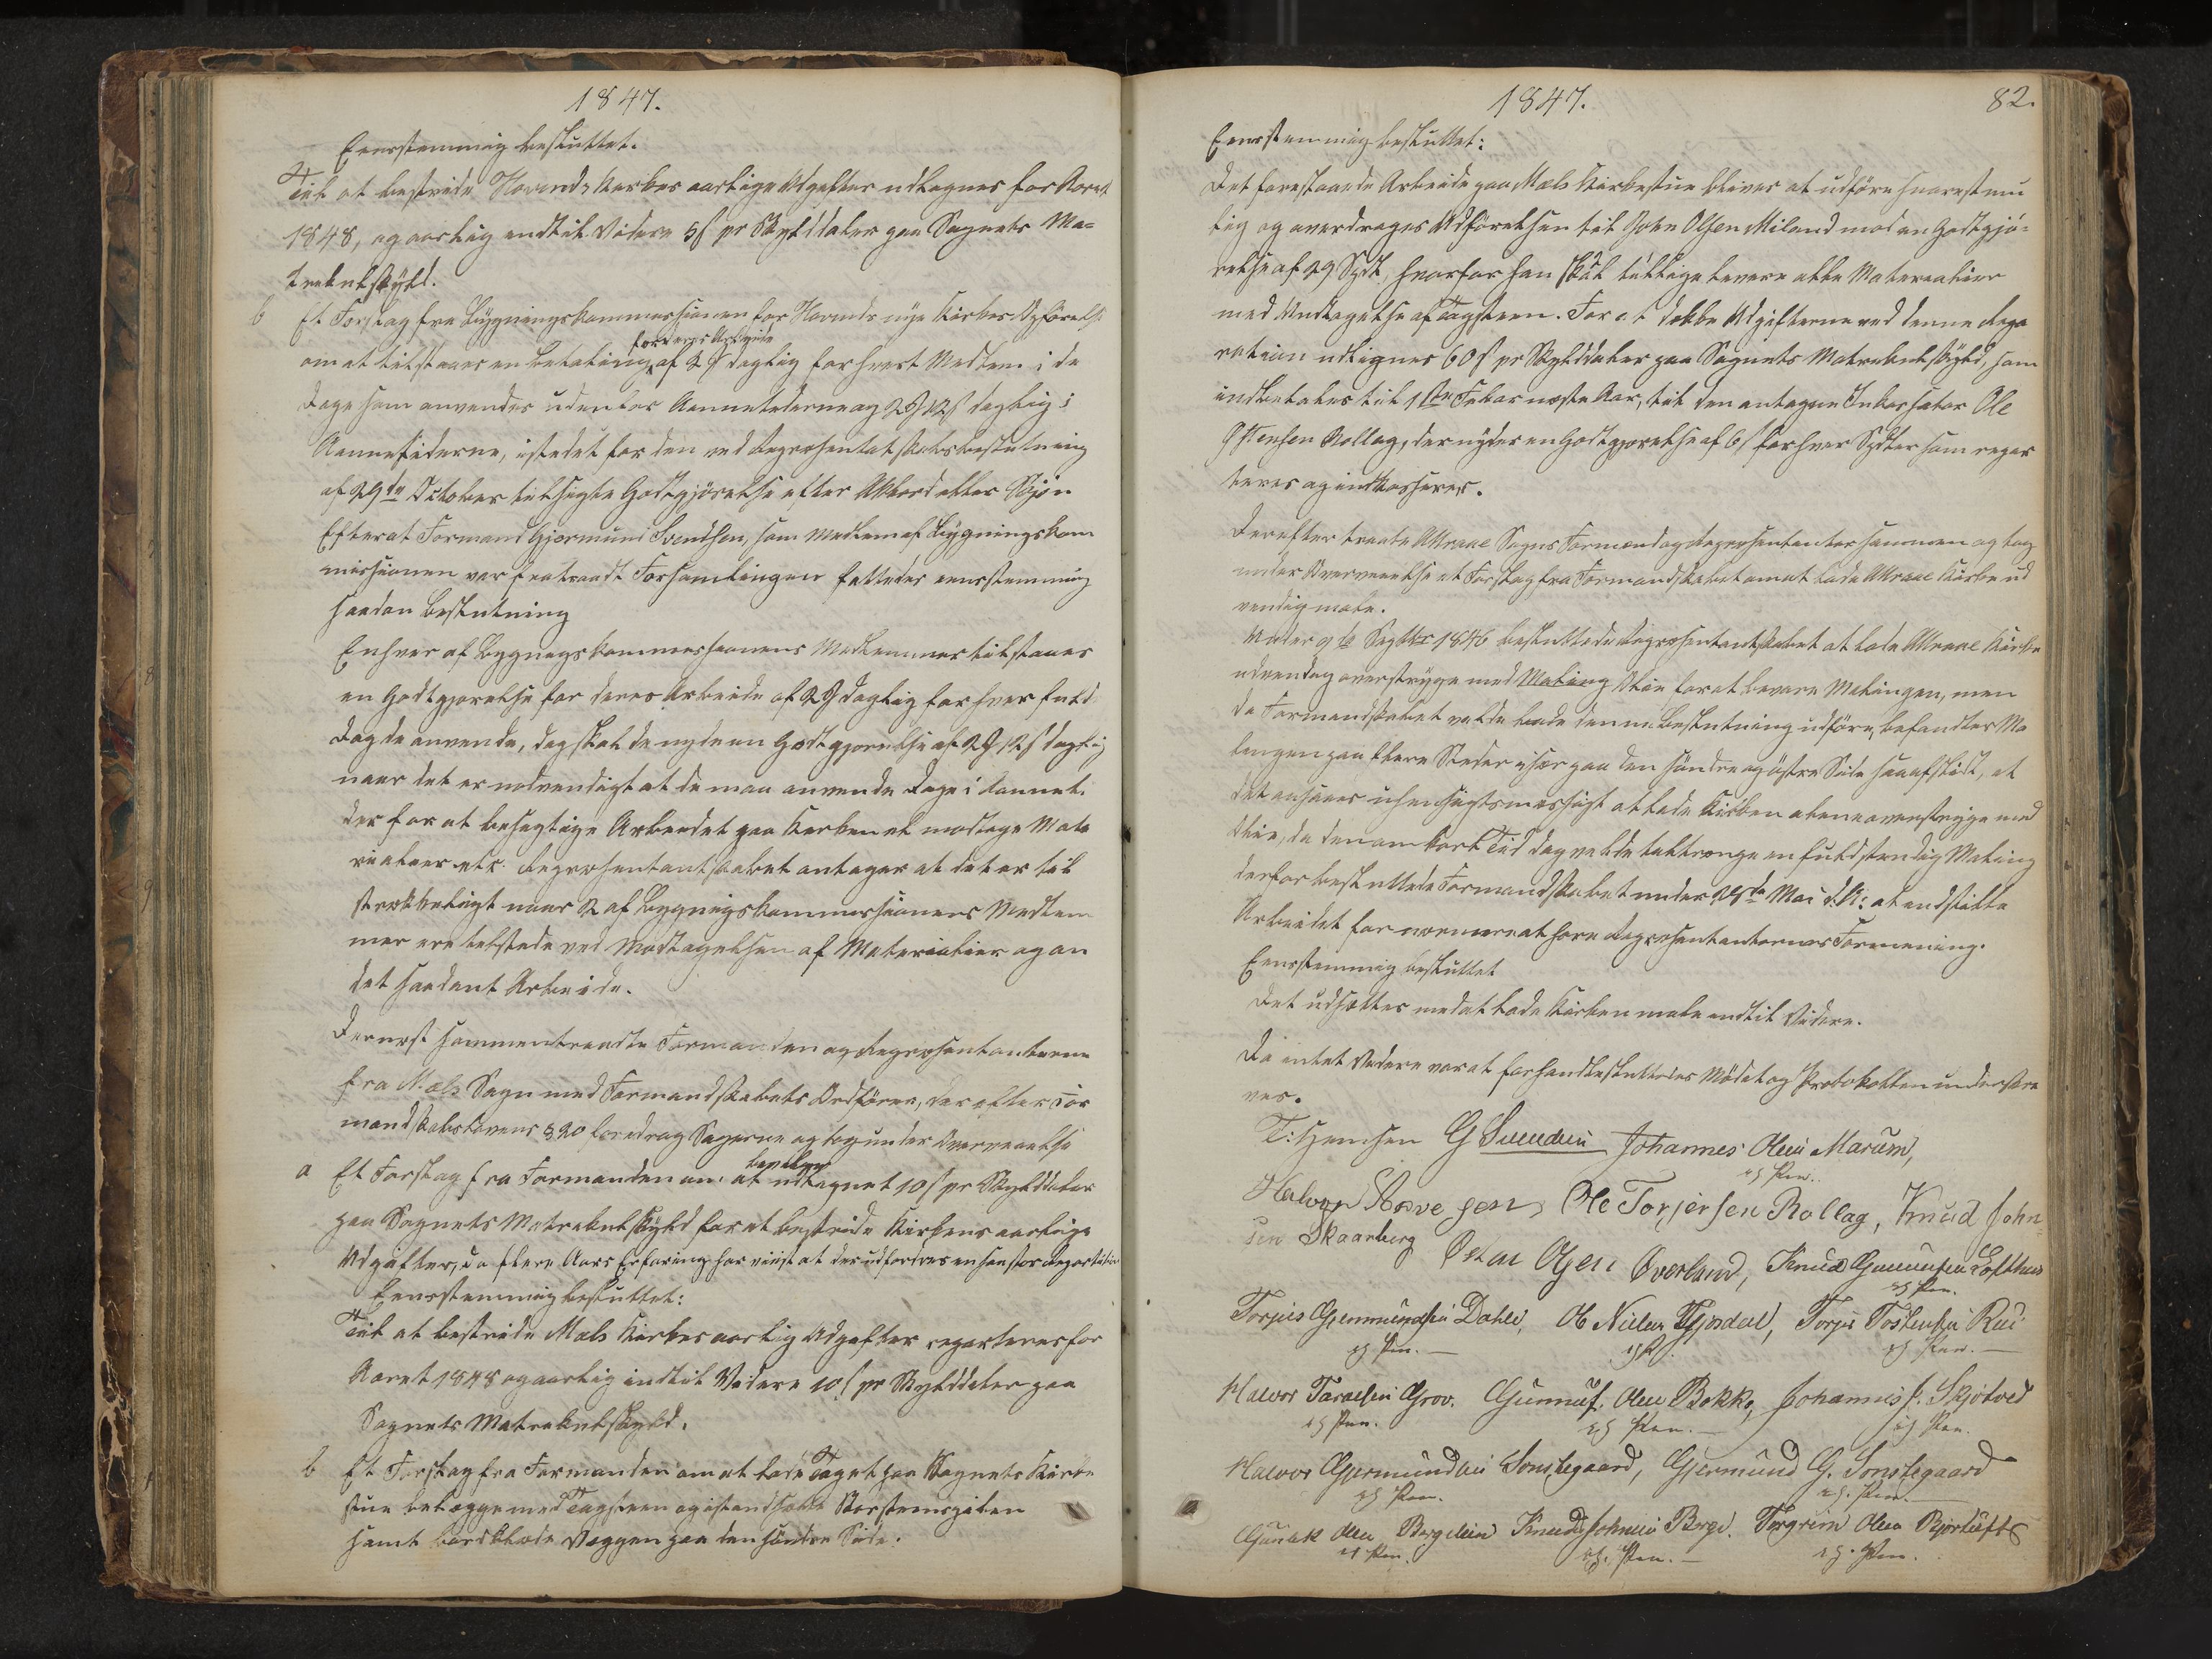 1847.
Eenstemmig besluttet.
Til at bestride Hovinds Kirkes aarlige Udgifter udlignes for Aaret
1848, og aarlig indtil Videre 5 s pr Skylddaler paa Sognets Ma=
trikulskyld.
b Et Forslag fra Bygningskommissionen for Hovinds nye Kirkes Opførelse
om at tilstaaes en Betaling for deres Arbeide af 2 daglig for hvert Medlem i de
Dage som anvendes udenfor Aannetiderne og 2 12 s daglig i
Aannetiderne, istedet for den ved Repræsentantskabsbeslutning
af 29de October tilsagte Godtgjörelse efter Akkord eller Skjøn
Efterat Formand Gjermund Svendsen, som Medlem af Bygningskom
missionen var fratraadt Forsamlingen fattedes eenstemmig
saadan Beslutning
Enhver af Bygningskommissionens Medlemmer tilstaaes
en Godtgjorelse for deres Arbeide af 2 daglig for hver fuld
Dag de anvende, dog skal de nyde en Godtgjorelse af 2 12 s daglig
naar det er nodvendigt at de maa anvende Dage i Aanneti
der for at besigtige Arbeidet paa Kirken el modtage Mate
rialier etc. Repræsentantskabet antager at det er til
strækkeligt naar 2 af Bygningskommissionens Medlem
mer ere tilstede ved Modtagelsen af Materialier og an
det saadant Arbeide.
Dernæst sammentraadte Formanden og Repræsentanterne
fra Mæls Sogn med Formandskabets Ordförer, der efter For
mandskabslovens § 20 foredrog Sagerne og tog under Overveielse
a Et Forslag fra Formanden om at bevilges udlignet 10 s pr Skylddaler
paa Sognets Matrikulskyld for at bestride Kirkens aarlige
Udgifter, da flere Aars Erfaring har viist at der udfordres en saa stor Repartition
Eenstemmig besluttet:
Til at bestride Mæls Kirkes aarlig Udgifter reparteres for
Aaret 1848 og aarlig indtil Videre 10 s pr Skylddaler paa
Sognets Matrikulskyld.
b Et Forslag fra Formanden om at lade Taget paa Sognets Kirke
stue belægge med Tagsteen og istandsætte Skorsteenspiben
samt bordklæde Væggen paa den søndre Side.
1847. 82.
Eenstemmig besluttet:
Det forestaaende Arbeide paa Mæls Kirkestue bliver at udföre snarest mu
lig og overdrages Udförelsen til John Olsen Miland mod en Godtgjö=
relse af 29 Spdl, hvorfor han skal tillige levere alle Materialier
med Undtagelse af Tagsteen. For at dække Udgifterne ved denne Repa
ration udlignes 60 s pr Skylddaler paa Sognets Matrikulskyld, som
indbetales til 1ste Febar næste Aar, til den antagne Inkassator Ole
Gstensen Rollag, der nyder en Godtgjorelse af 6 s for hver Spdler som repar
teres og indkasseres.
Derefter traadte Attraae Sogns Formænd og Repræsentanter sammen og tog
under Overveielse et Forslag fra Formandskabet om at lade Attraae Kirke ud
vendig male.
Under 9de Septbr 1846 besluttede Repræsentantskabet at lade Attraae Kirke
udvendig overstryge med Maling Olie for at bevare Malingen, men
da Formandskabet vilde lade denne Beslutning udföre, befandtes Ma
lingen paa flere Steder især paa den söndre og östre Side saa afslidt, at
det ansaaes uhensigtsmæssigt at lade Kirken alene overstryge med
Olie, da den om kort Tid dog vilde tiltrænge en fuldstændig Maling
derfor besluttede Formandskabet under 29de Mai d. A: at indstille
Arbeidet for nærmere at höre Repræsentanternes Formening.
Eenstemmig besluttet
Det udsættes med at lade Kirken male indtil Videre.
Da intet Videre var at forhandle sluttedes Mödet og Protokollen underskre
ves.
T: Hemsen G Svendsen Johannes Olsen Marum,
m. f. Pen.
Halvor Aavesen, Ole Torjersen Rollag, Knud John=
sen Skaarberg Østen Olsen Øverland, Knud Gunnufsen Lofthus
m f Pen.
Torjus Gjermundsen Dahle, Ole Nielsen Gjøsdal, Torjus Tostensen Rui
m f Pen. m f P. m f Pen.
Halvor Taraldsen Grov. Gunnuf. Olsen Bokko, Johannes J. Skjotved
m f Pen. m f Pen. m f Pen.
Halvor Gjermundsen Sonstegaard, Gjermund G. Sonstegaard
m f Pen. m f. Pen.
Gunlek Olsen Bergelien Knud Johnsen Berge. Torgrim Olsen Bjortuft
m f Pen. m f. Pen. m f. Pen.